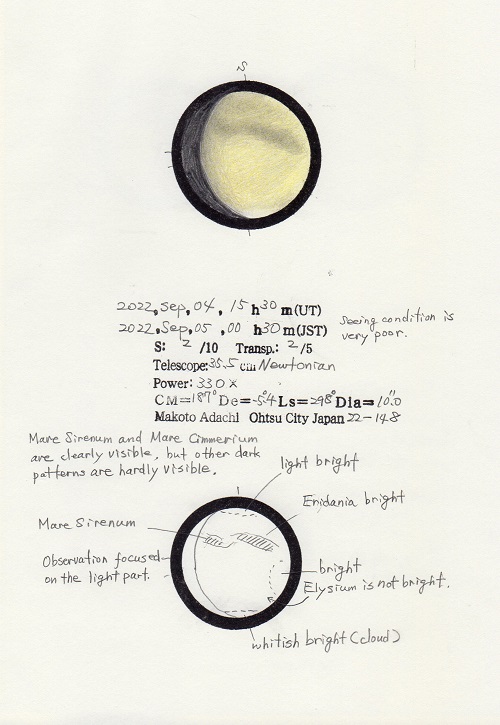 S
2022, Sep, 04, 15 h 30 m (UT)
2022, Sep, 05, 00 h 30 m (JST)
Seeing condition is
very poor.
S: 2 /10 Transp.: 2 /5
Telescope: 35.5 cm Newtonian
Power: 330 x
CM=187° De=-5.°4 Ls=298° Dia=10."0
Makoto Adachi Ohtsu City Japan 22-148
Mare Sirenum and Mare Cimmerium
are clearly visible, but other dark
patterns are hardly visible.
light bright
Eridania bright
Mare Sirenum
Observation focused
on the light part.
bright
Elysium is not bright.
whitish bright (cloud)